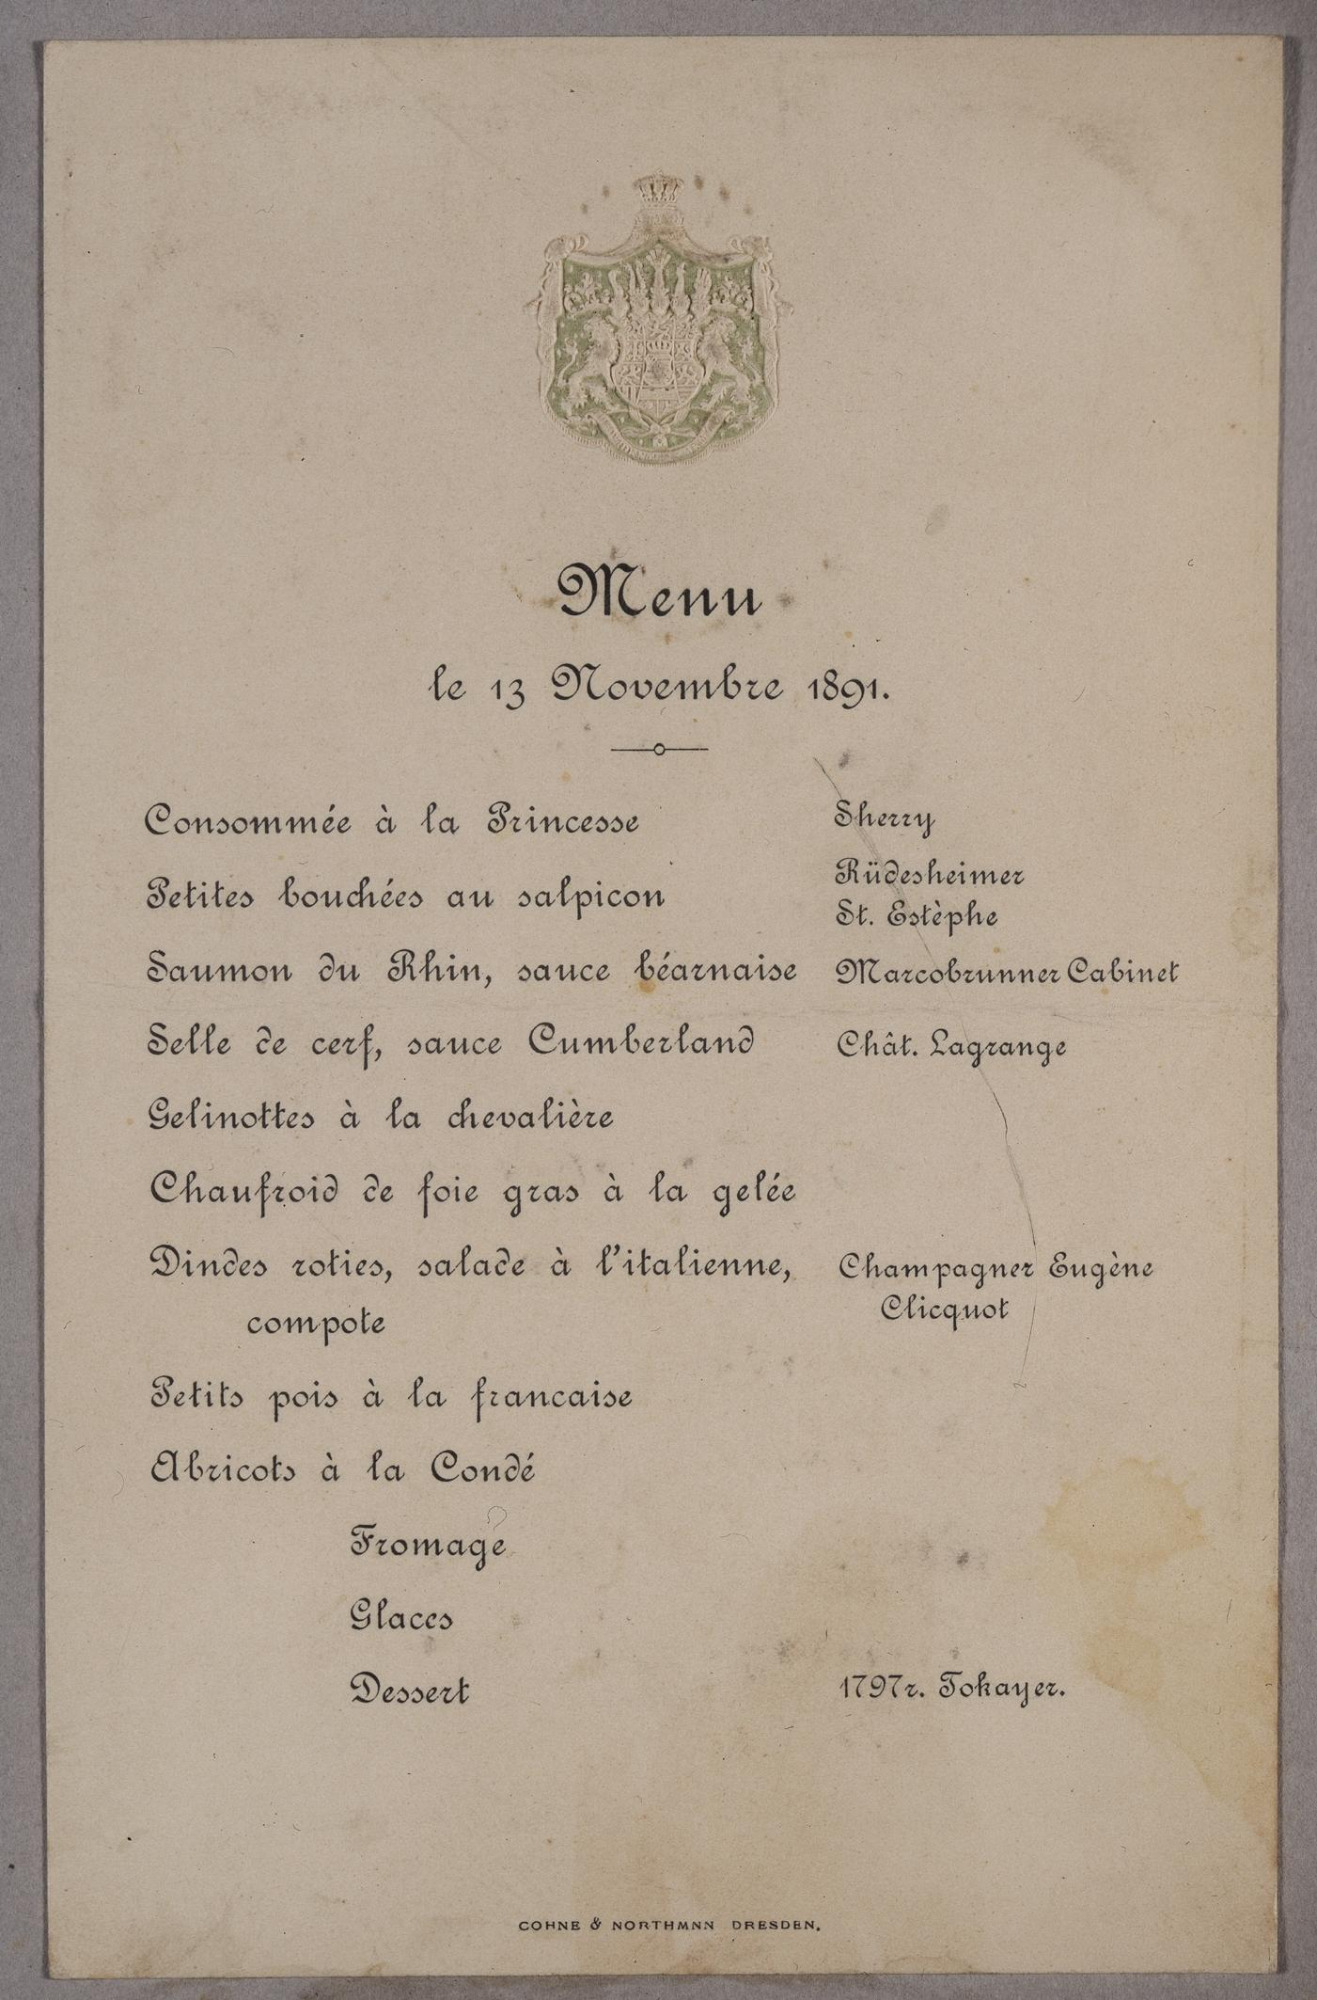 Menu
le 13 Novembre 1891.
Consommée à la Princesse
Sherry
Petites bouchées au salpicon
Rüdesheimer
St. Estèphe
Saumon du Rhin, sauce béarnaise
Marcobrunner Cabinet
Selle de cerf, sauce Cumberland
Chât. Lagrange
Gelinottes à la chevalière
Chaufroid de foie gras à la gelée
Dindes roties, salade à l'italienne,
compote
Champagner Eugène
Clicquot
Petits pois à la francaise
Abricots à la Condé
Fromage
Glaces
Dessert
1797r. Tokayer.
COHNE & NORTHMNN DRESDEN.